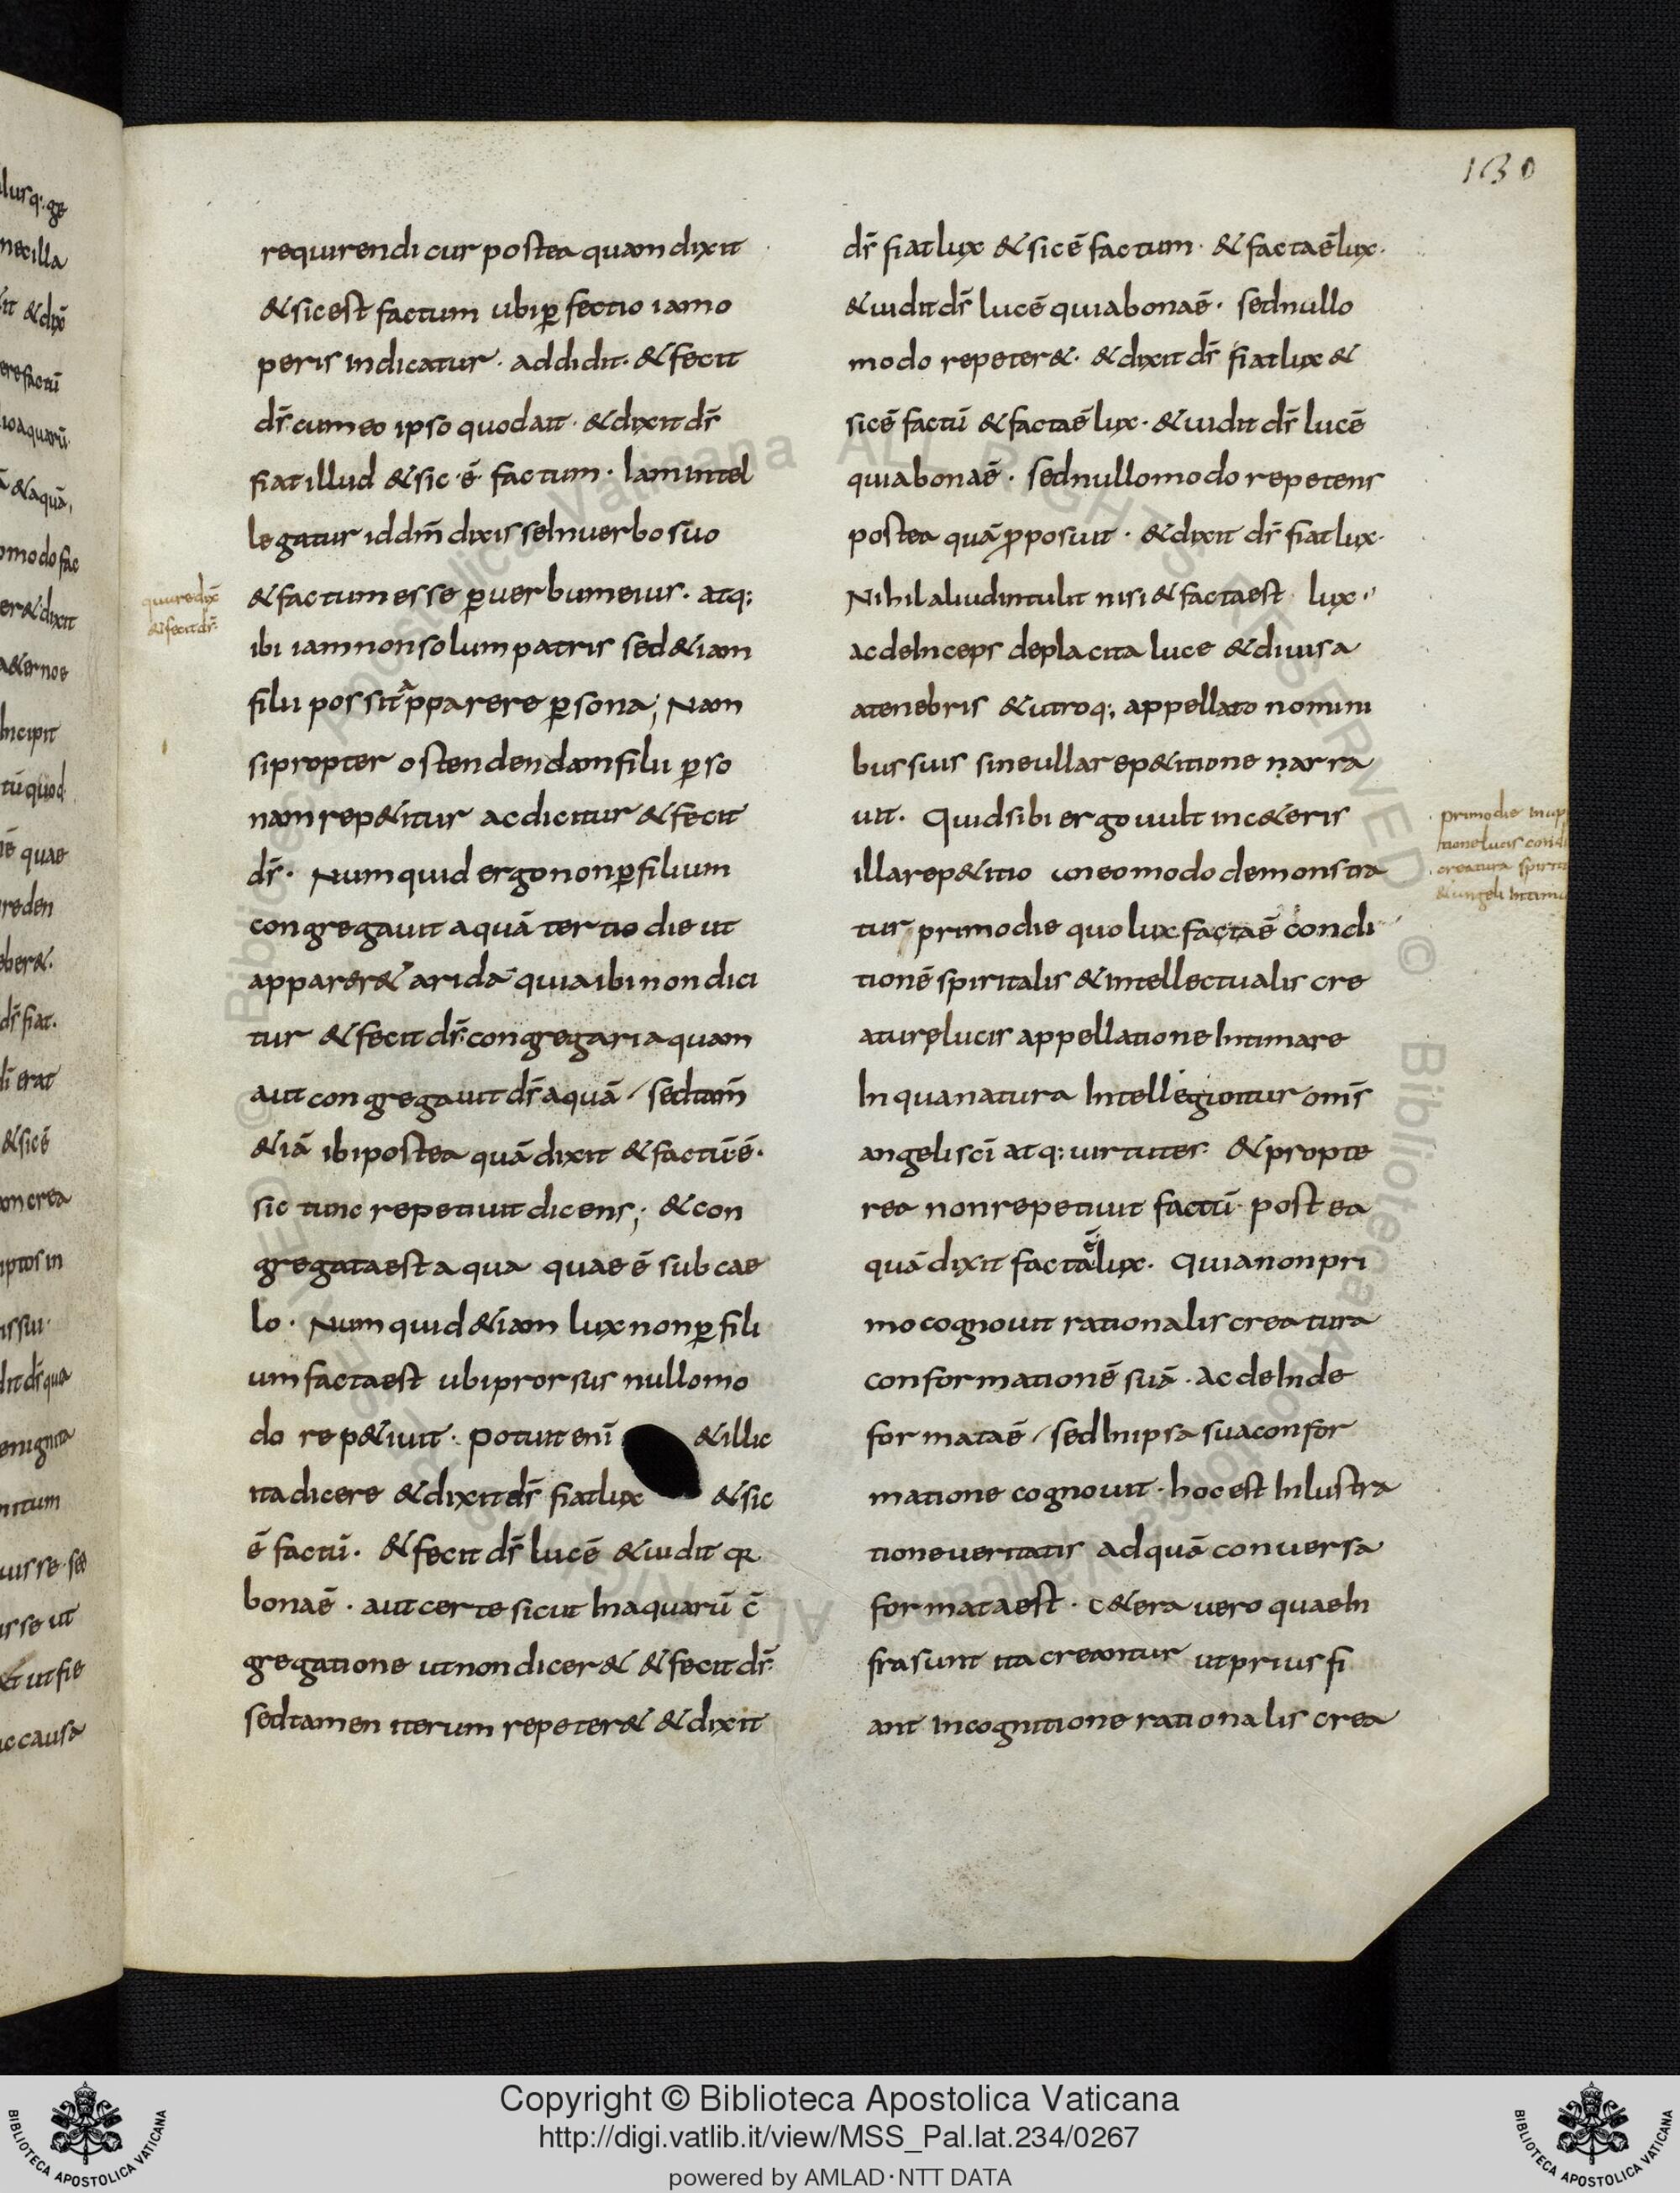 130
requirendi cur postea quam dixit
& sic est factum ubi ꝑfectio iam o
peris indicatur · addidit · & fecit
dr̄ cum eo ipso quod ait · & dixit dr̄
fiat illud & sic · ē factum · Iam intel
legatur id dm̄ dixisse In uerbo suo
& factum esse ꝑ uerbum eius · atq:
ibi iam non solum patris sed &iam
filii possit apparere ꝑsona; Nam
si propter ostendendam filii ꝑso
nam rep&itur ac dicitur & fecit
dr̄ · Numquid ergo non ꝑ filium
congregauit aquā tertio die ut
apparer& arida quia ibi non dici
tur & fecit dr̄ congregari aquam
aut congregauit dr̄ aquā / sed tam̄
&iā ibi postea quā dixit & factū ē ·
sic tunc repetiuit dicens; & con
gregata est aqua quae ē sub cae
lo · Numquid &iam lux non ꝑ fili
um facta est ubi prorsus nullo mo
do rep&iuit · Potuit enī & illic
ita dicere & dixit dr̄ fiat lux & sic
ē factū · & fecit dr̄ lucē & uidit qꝛ
bona ē · aut certe sicut In aquarū c̄
gregatione ut non dicer& & fecit dr̄
sed tamen iterum repeter& & dixit
dr̄ fiat lux & sic ē factum · & facta ē lux ·
& uidit dr̄ lucē quia bona ē · sed nullo
modo repeter& · & dixit dr̄ fiat lux &
sic ē factū & facta ē lux · & uidit dr̄ lucē
quia bona ē · sed nullo modo repetens
postea quā ꝓposuit · & dixit dr̄ fiat lux ·
Nihil aliud intulit nisi & facta est lux ·
ac deInceps de placita luce & diuisa
a tenebris & utroq; appellato nomini
bus suis sine ulla rep&itione narra
uit · Quid sibi ergo uult in c&eris
illa rep&itio an eo modo demonstra
tur primo die quo lux facta ē condi
tionē spiritalis & intellectualis cre
aturę lucis appellatione Intimare
In qua natura Intelleguntur omīs
angeli sc̄i atq: uirtutes · & propte
rea non repetiuit factū · postea
quā dixit facta ē lux · Quia non pri
mo cognouit rationalis creatura
conformationē suā · ac deInde
formata ē / sed In ipsa sua confor
matione cognouit · hoc est Inlustra
tione ueritatis ad quā conuersa
formata est · c&era uero quae In
fra sunt ita creantur ut prius fi
ant In cognitione rationalis crea
& fecit dr̄
primo die
creatura
Copyright © Biblioteca Apostolica Vaticana
http://digi.vatlib.it/view/MSS_Pal.lat.234/0267
powered by AMLAD·NTT DATA
BIBLIOTECA APOSTOLICA VATICANA
BIBLIOTECA APOSTOLICA VATICANA